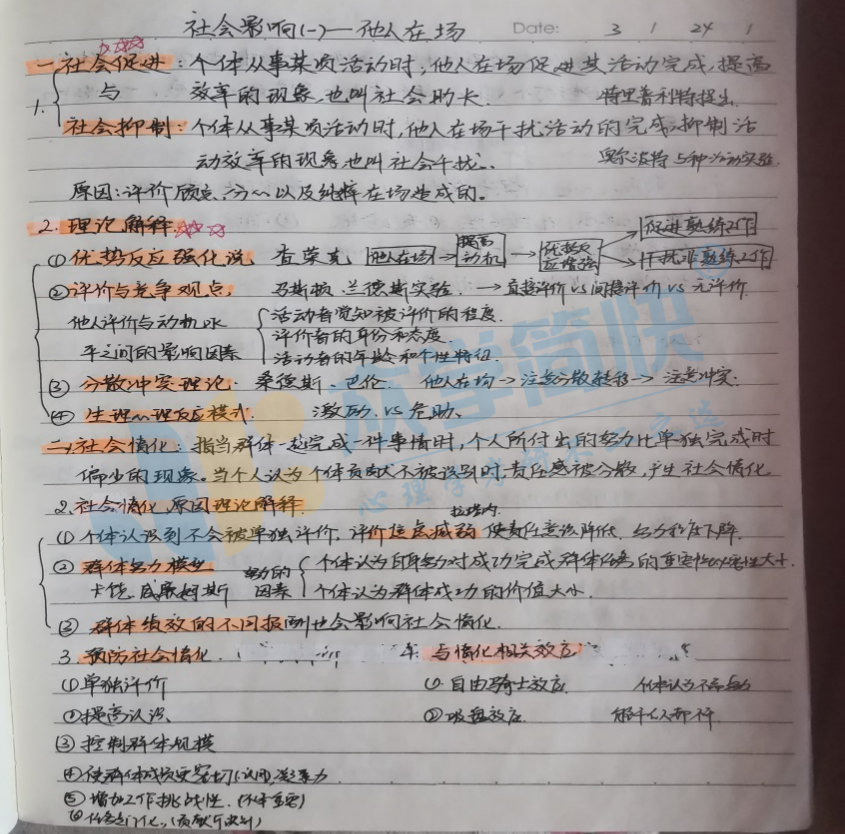 社会影响(一)—他人在场 Date: 3 / 24 /
一.社会促进:个体从事某项活动时,他人在场促进其活动完成,提高
1. 与 效率的现象,也叫社会助长. 特里普利特提出.
社会抑制:个体从事某项活动时,他人在场干扰活动的完成,抑制活
动效率的现象,也叫社会干扰. 奥尔波特 5种活动实验.
原因:评价顾忌,分心以及纯粹在场造成的。
2.理论解释
①优势反应强化说 查荣克 他人在场→提高动机→优势反应增强 促进熟练工作
干扰非熟练工作
②评价与竞争观点, 马斯顿 兰德斯实验. →直接评价 vs 间接评价 vs 无评价
他人评价与动机水 活动者觉知被评价的程度.
平之间的影响因素 评价者的身份和态度.
活动者的年龄和个性特征.
③分散冲突理论: 桑德斯、巴伦. 他人在场→注意分散转移→注意冲突.
④生理心理反应模式. 激励 vs 危助、
二.社会惰化:指当群体一起完成一件事情时,个人所付出的努力比单独完成时
偏少的现象。当个人认为个体贡献不被识别时,责任感被分散,产生社会惰化。
2.社会惰化原因理论解释. 拉塔内.
①个体认识到不会被单独评价,评价焦点减弱 使责任意识降低,努力程度下降.
②群体努力模型 努力的 个体认为自身努力对成功完成群体任务的重要性大小.
卡饶.威廉姆斯 因素 个体认为群体成功的价值大小.
③群体绩效的不同报酬也会影响社会惰化.
3.预防社会惰化. 4.与惰化相关效应
①单独评价 ①自由骑士效应.
②提高认识、 ②吸盘效应.
③控制群体规模
④使群体成员更密切(认同)凝聚力
⑤增加工作挑战性.
炊学简快